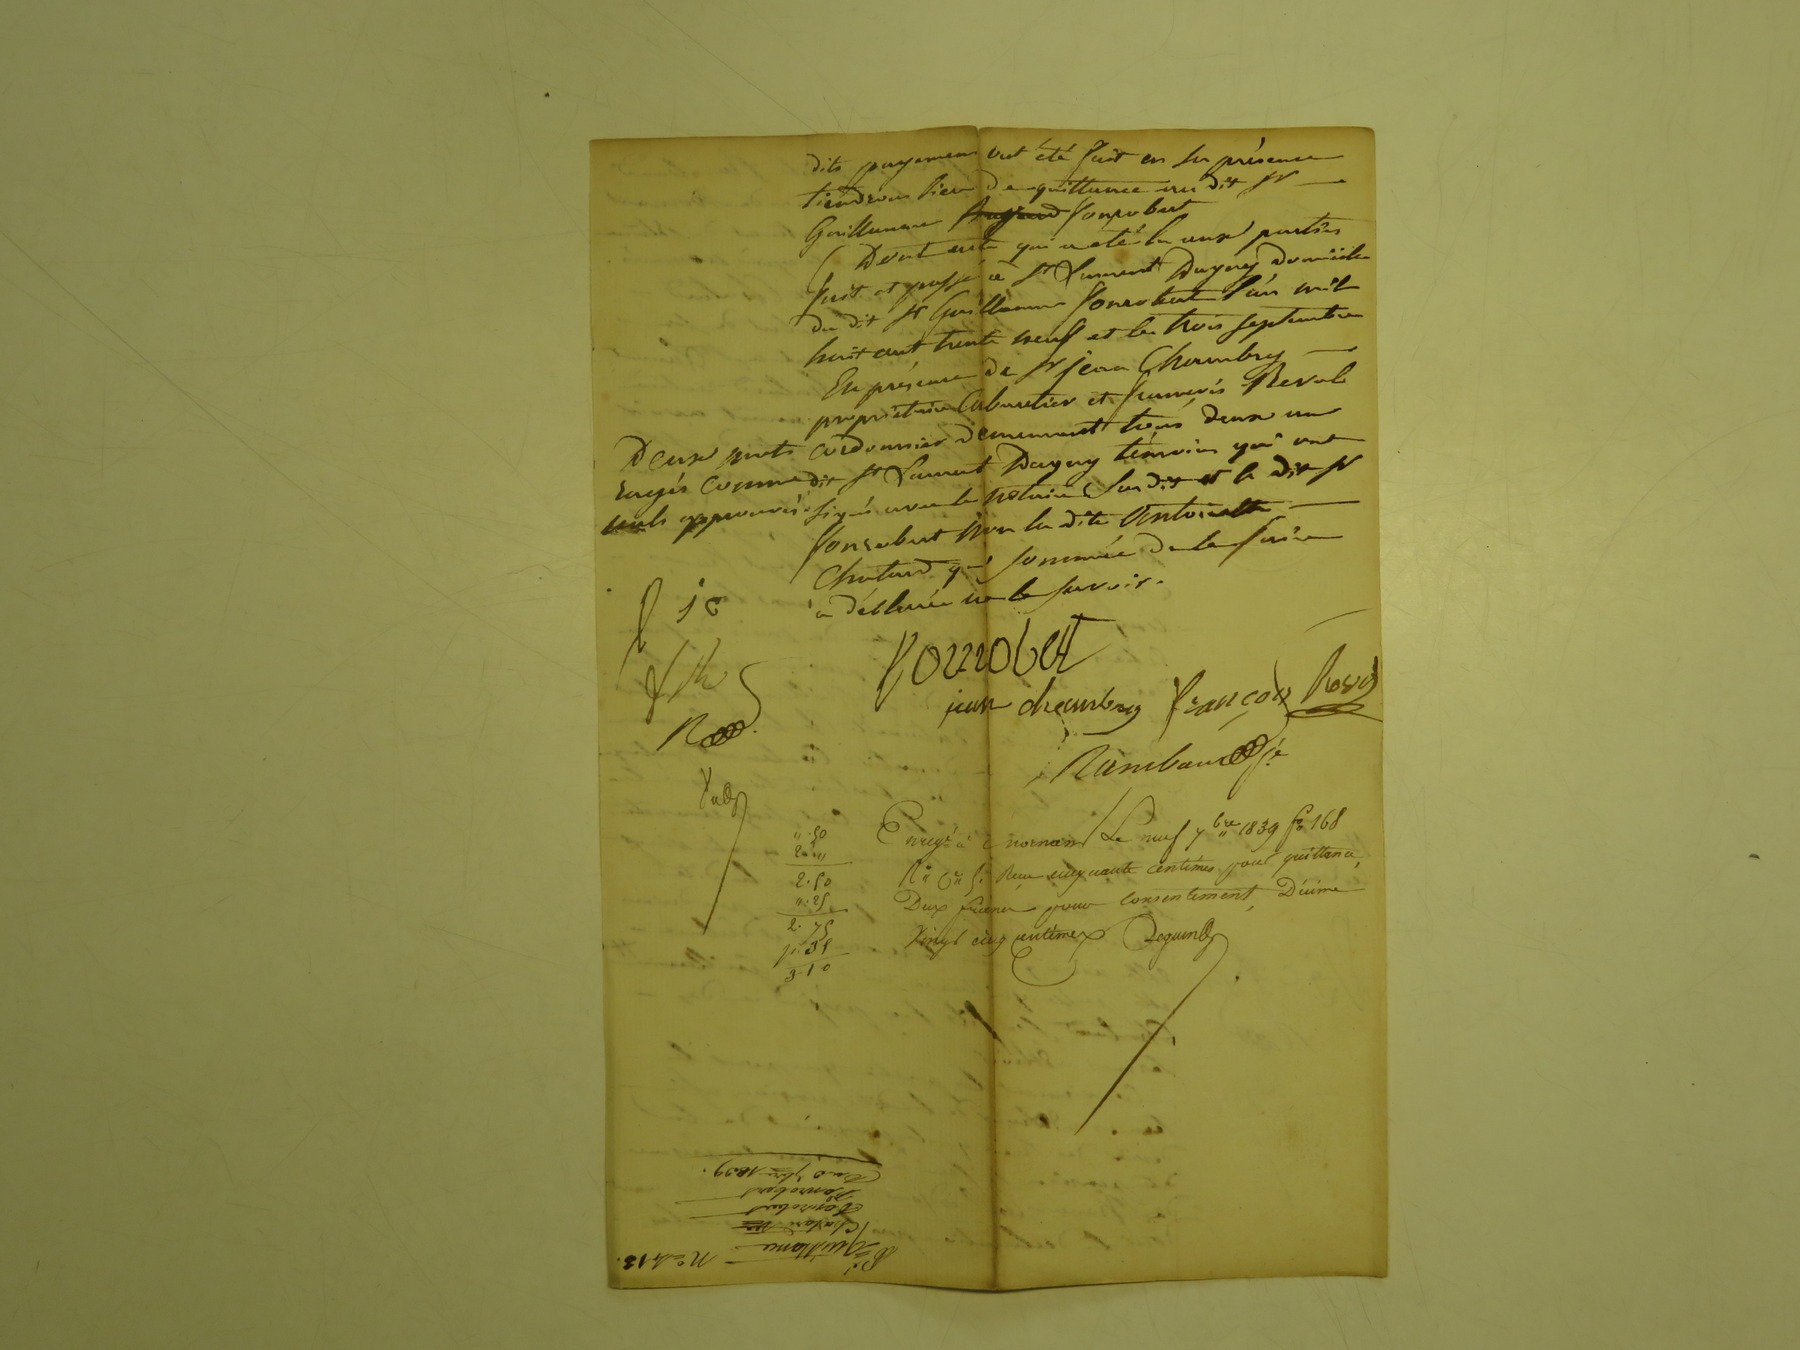 dits payemens ont été fait en sa présence
tiendrons lieu de quittance au dit Sr
Guillaume Fonrobert
Dont acte qui a été lu aux parties
fait et passé à St Laurent Dagny domicile
du dit Sr Guillaume Fonrobert l'an mil
huit cent trente neuf et le trois septembre
En présence de Sr jean Chambry
propriétaire Cabaretier et francois Reval
cordonnier demeurant tous deux au
dit St Laurent Dagny témoins qui ont
signé avec le notaire susdit et le dit Sr
Fonrobert non la dite Antoinette
Chatard qui sommée de le faire
a déclarée ne le savoir.
Deux mots
rayés comme
nuls approuvés
fonrobert
jean chambry françois
Rambaud
".50
2."
2.50
".25
2.75
".35
3.10
Enregé à Mornant Le neuf 7bre 1839 fo 168
Reçu cinquante centimes pour quittance,
Deux francs pour consentement, Décime
Vingt cinq centimes
3 7bre 1839.
Fonrobert
Quittance
No 413.